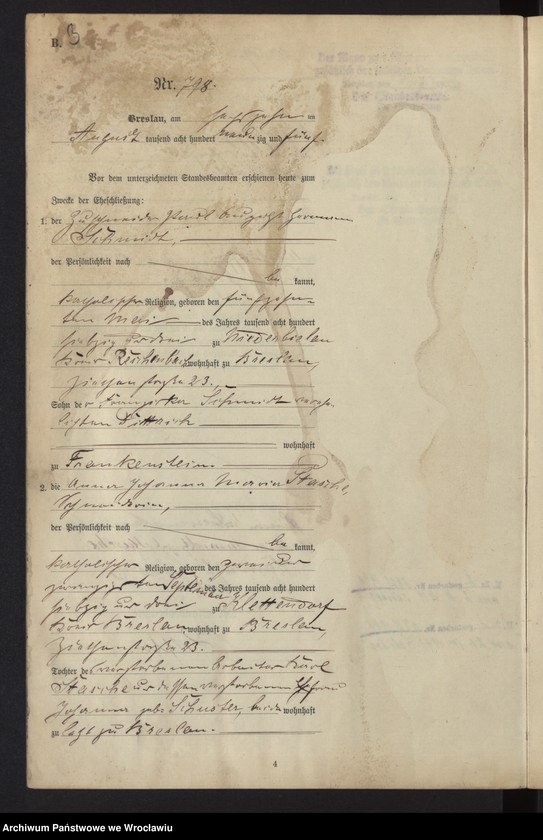 B. 3
Nr. 798.
Breslau, am sechszehn ten
August tausend acht hundert neun zig und fünf.
Vor dem unterzeichneten Standesbeamten erschienen heute zum
Zwecke der Eheschließung:
1. der Zuschneider Paul August Hermann
Schmidt,
der Persönlichkeit nach
be kannt,
katholischer Religion, geboren den fünfzehn
ten Mai des Jahres tausend acht hundert
siebzig und drei zu
Kreis Reichenbach, wohnhaft zu Breslau,
straße 23.,
Sohn der Franziska Schmidt
Dittrich
wohnhaft
zu Frankenstein.
2. die Anna Johanna Maria Stasche,
Schneiderin,
der Persönlichkeit nach
be kannt,
katholischer Religion, geboren den zwei und
zwanzigsten September des Jahres tausend acht hundert
siebzig und drei zu Klettendorf
Kreis Breslau, wohnhaft zu Breslau,
straße 23.
Tochter des verstorbenen Arbeiter Karl
Stasche und dessen verstorbenen Ehefrau
Johanna geb. Schuster, beide wohnhaft
zu letzt zu Breslau.
4
Archiwum Państwowe we Wrocławiu